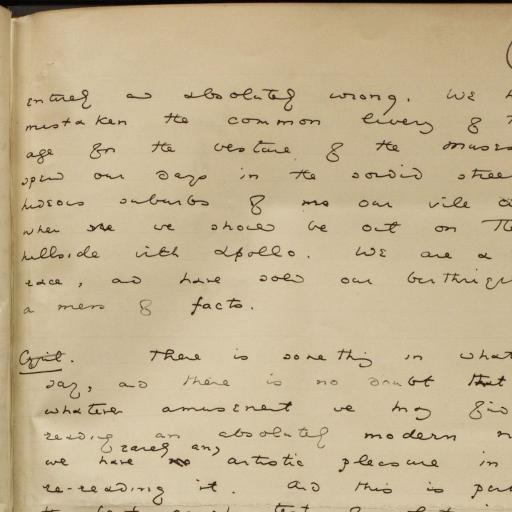 entirely and absolutely wrong. We
mistaken the common livery of
age for the vesture of the Muses
spend our days in the sordid stree
hideous suburbs of our vile ci
when we should be out on the
hillside with Apollo. We are a
race, and have sold our birthrigh
a mess of facts.
Cyril. There is something in what
say, and there is no doubt that
whatever amusement we may fin
reading an absolutely modern n
rarely any
we have artistic pleasure in
re-reading it. And this is per